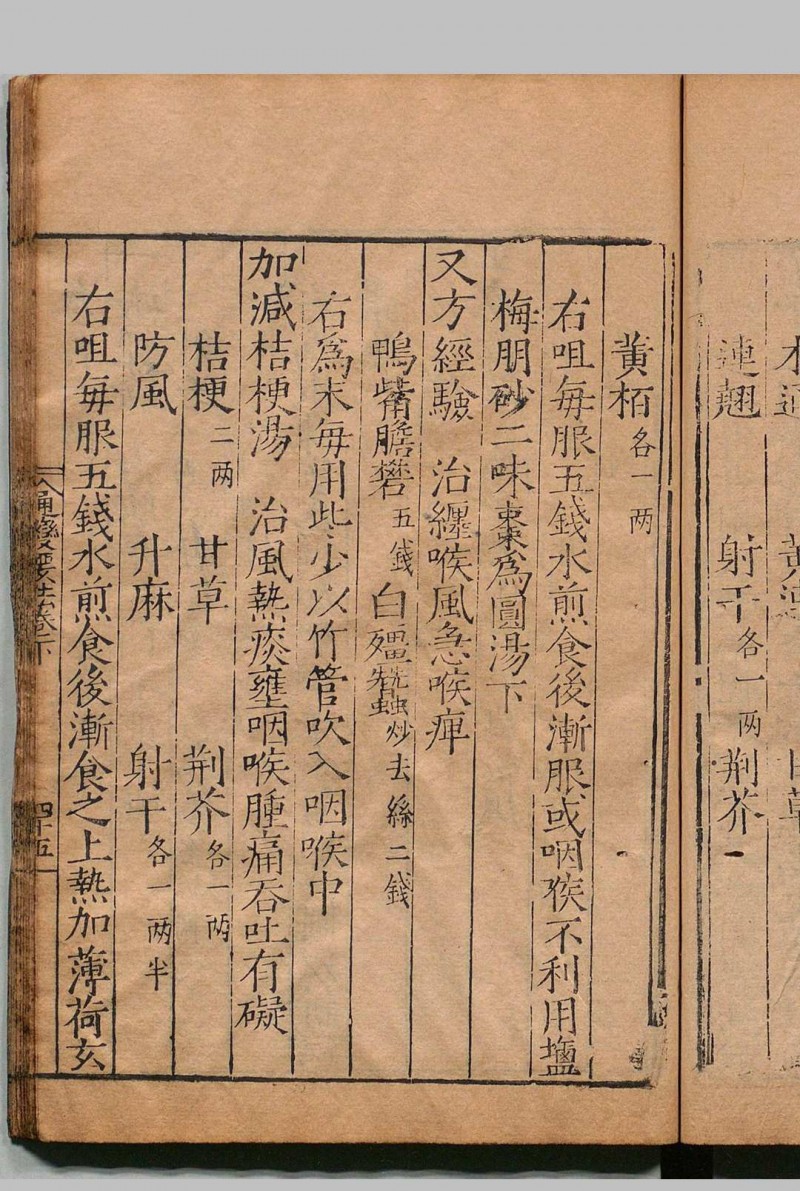 連翹　射干各一两　荆芥
黄栢各一两
右咀每服五錢水煎食後漸服或咽㗋不利用鹽
梅朋砂二味棗爲圓湯下
又方經驗　治纒喉風急喉痺
鴨觜膽礬五錢白殭蠶炒去絲二錢
右爲末每用些少以竹管吹入咽喉中
加減桔梗湯　治風熱痰壅咽喉腫痛吞吐有礙
桔梗二两　甘草　荆芥各一两
防風　升麻　射干各一两半
右咀每服五錢水煎食後漸食之上熱加薄荷玄
四十五